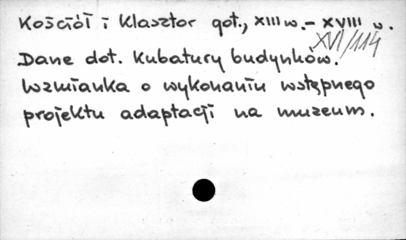 Kościół i Klasztor got., XIII w. - XVIII w.
XVI/114
Dane dot. kubatury budynków.
Wzmianka o wykonaniu wstępnego
projektu adaptacji na muzeum.